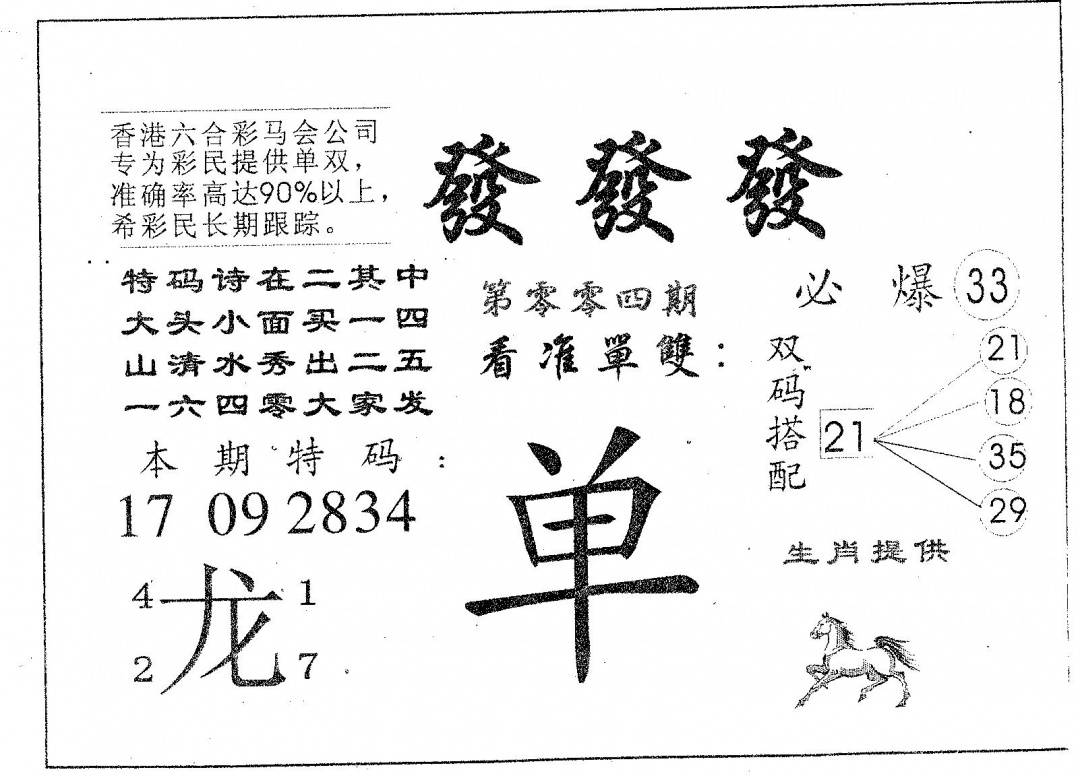 香港六合彩马会公司
专为彩民提供单双，
准确率高达90%以上，
希彩民长期跟踪。
發 發 發
特码诗在二其中
大头小面买一四
山清水秀出二五
一六四零大家发
第零零四期
看准單雙：
必 爆 33
双码搭配
21
21
18
35
29
本期特码：
17 09 2834
单
4 龙 1
2 7
生肖提供